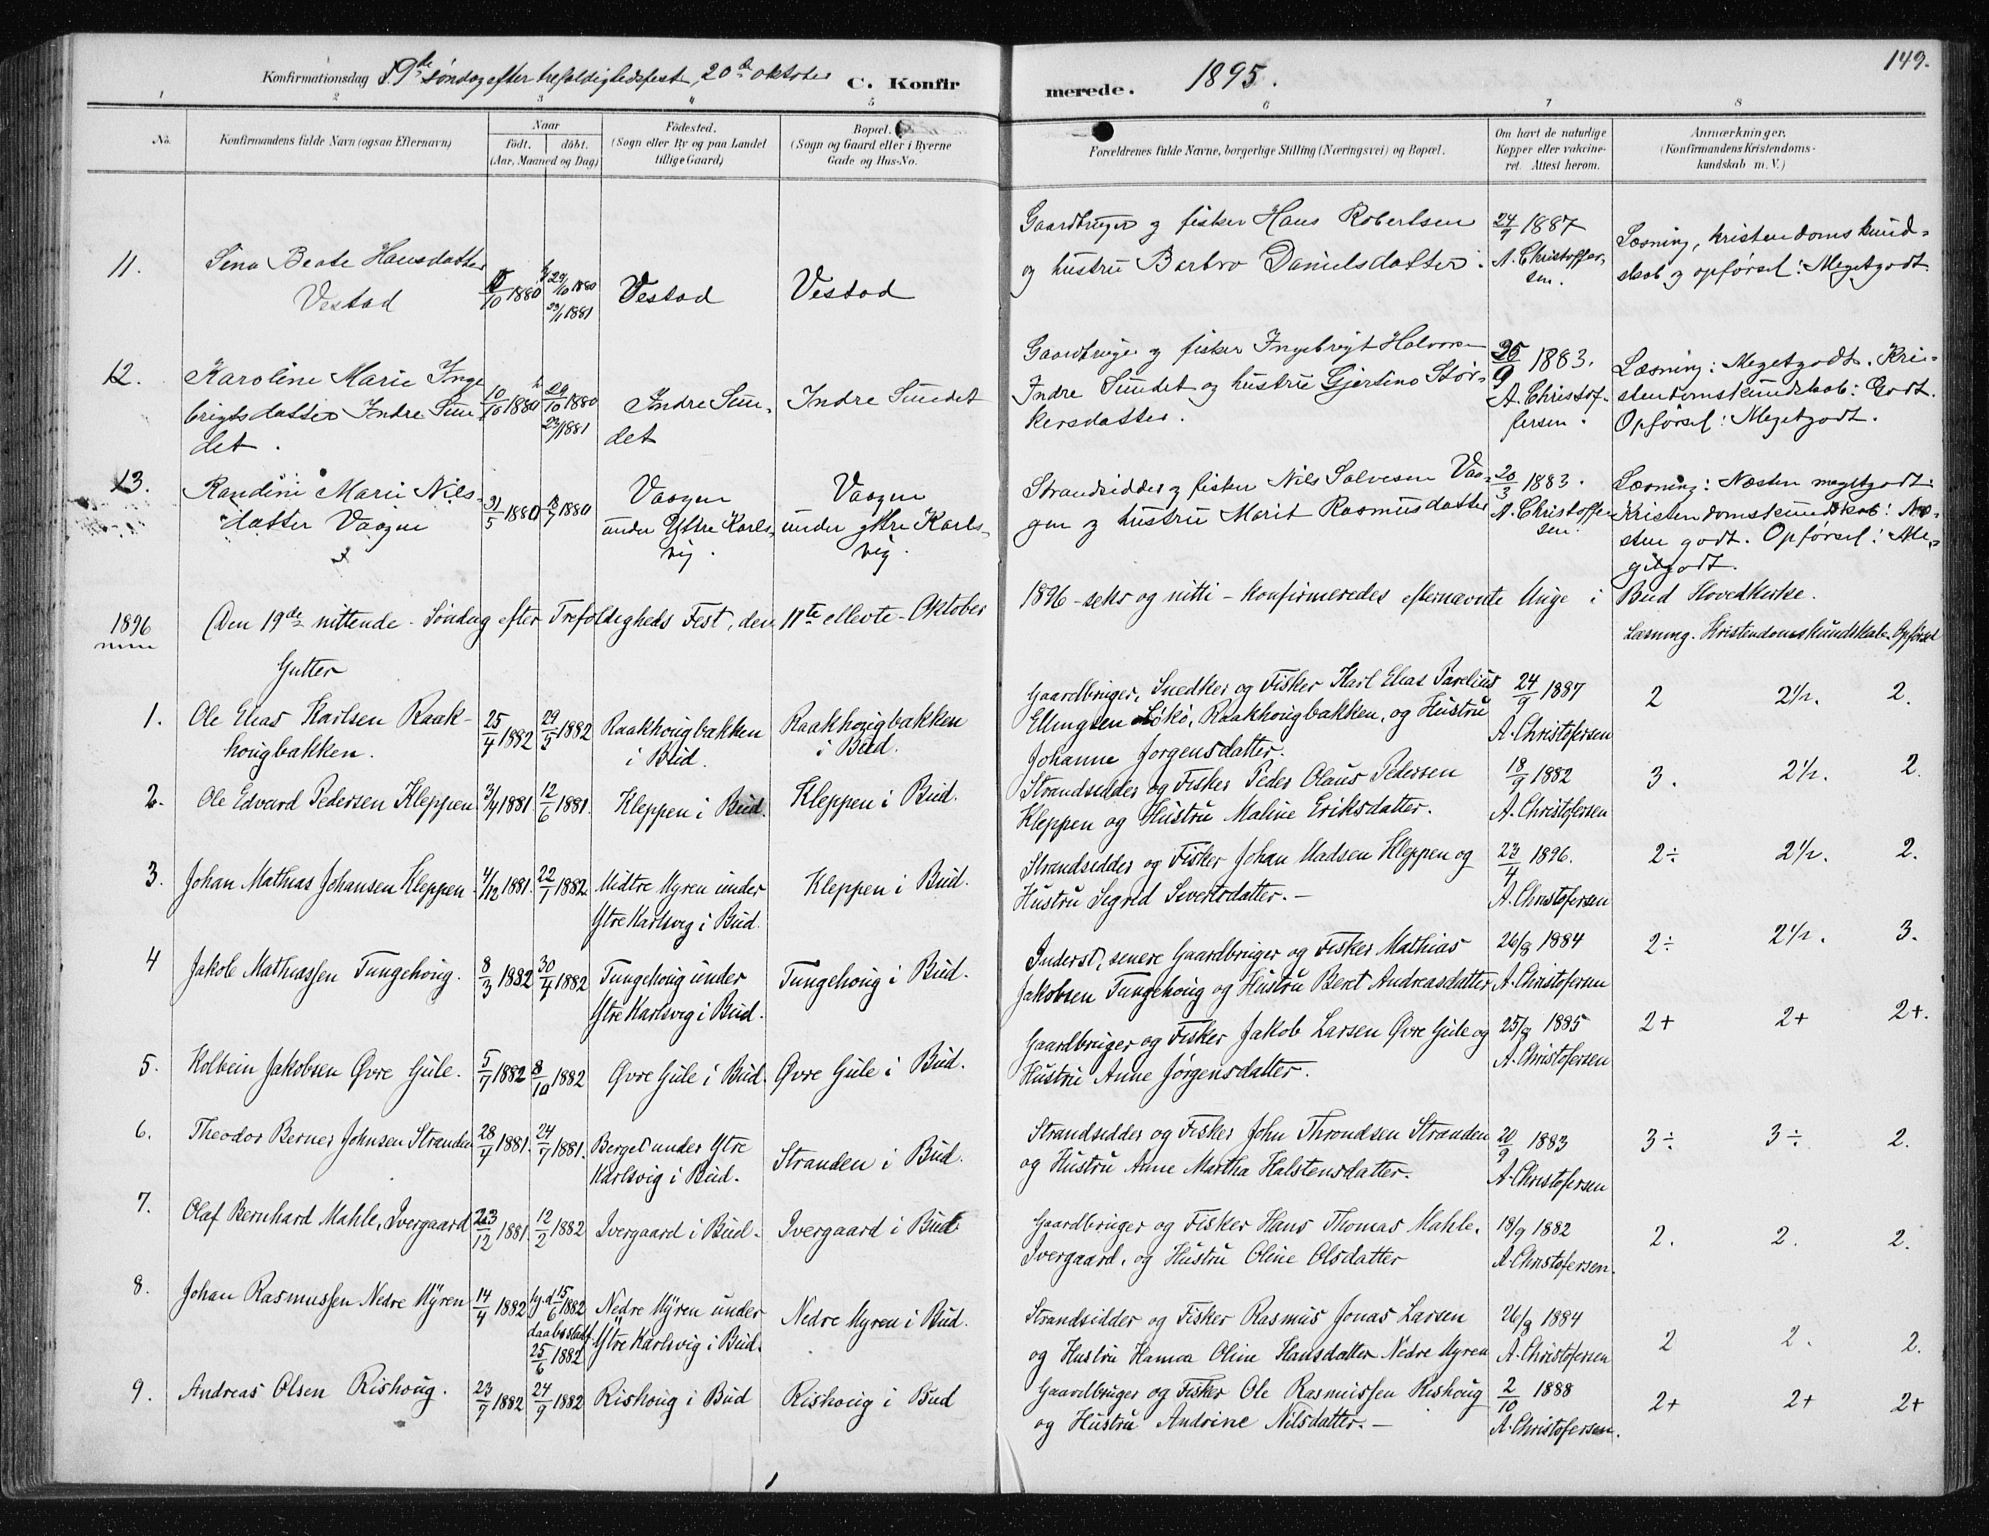 149.
Konfirmationsdag 19de søndag efter trefoldighedsfest, 20de oktober C. Konfirmerede. 1895.
1 2 3 4 5 6 7 8
No. Konfirmandens fulde Navn (ogsaa Efternavn) Naar Født. døbt. (Aar, Maaned og Dag) Fødested. (Sogn eller By og paa Landet tillige Gaard) Bopæl. (Sogn og Gaard eller i Byerne Gade og Hus-No. Forældrenes fulde Navne, borgerlige Stilling (Næringsvei) og Bopæl. Om havt de naturlige Kopper eller vakcineret. Attest herom. Anmærkninger. (Konfirmandens Kristendomskundskab m. V.)
11. Sina Beate Hansdatter
Vestad /10 1880 29/10 1880 23/1 1881 Vestad Vestad
Gaardbruger og fisker Hans Robertsen
og hustru Barbro Danielsdatter.
24/9 1887
A. Christoffersen.
Læsning, kristendomskund-
skab og opførsel: Meget godt.
12. Karoline Marie Inge
brigtsdatter Indre Sun
det. 10/10 1880 29/10 1880 23/1 1881 Indre Sun-
det Indre Sundet
Gaardbruger og fisker Ingebrigt Halvors
Indre Sundet og hustru Gjertine Stør-
kersdatter.
25/9 1883.
A. Christof-
fersen.
Læsning: Meget godt. Kri-
stendomskundskab: Godt.
Opførsel: Meget godt.
13. Randine Marie Nils-
datter Vaagen 31/5 1880 18/7 1880 Vaagen
under Ytre Karls-
vig. Vaagen
under ytre Karls-
vig.
Strandsidder og fisker Nils Salvesen Vaa-
gen og hustru Marit Rasmusdatter
20/3 1883.
A. Christoffer
sen.
Læsning: Næsten meget godt.
Kristendomskundskab: Næ-
sten godt. Opførsel: Me-
get godt.
1896 Den 19de nittende Søndag efter Trefoldigheds Fest, den 11te ellevte Oktober 1896 - seks og nitti - konfirmeredes efternævnte Unge i Bud Hovedkirke.
Læsning. Kristendomskundskab. Opførsel
Gutter
1. Ole Elias Karlsen Raak-
hougbakken. 25/4 1882 29/5 1882 Raakhougbakken
i Bud. Raakhougbakken
i Bud.
Gaardbruger, Snedker og Fisker Karl Elias Parelius
Ellingsen Løkø, Raakhougbakken, og Hustru
Johanne Jørgensdatter.
24/9 1887
A. Christofersen
2 2½. 2.
2. Ole Edvard Pedersen Kleppen 3/4 1881 12/6 1881. Kleppen i Bud. Kleppen i Bud.
Strandsidder og Fisker Peder Olaus Pedersen
Kleppen og Hustru Maline Eriksdatter.
18/9 1882
A. Christofersen
3. 2½. 2.
3. Johan Mathias Johansen Kleppen 4/12 1881. 22/1 1882 Midtre Myren under
Ytre Karlsvig i Bud. Kleppen i Bud.
Strandsidder og Fisker Johan Madsen Kleppen og
Hustru Sigrid Sivertsdatter. –
23/4 1896.
A. Christofersen
2÷ 2½. 2.
4 Jakob Mathiassen Tungehoug. 8/3 1882 30/4 1882 Tungehoug under
Ytre Karlsvig i Bud. Tungehoug i Bud.
Inderst, senere Gaardbruger og Fisker Mathias
Jakobsen Tungehoug og Hustru Beret Andreasdatter
26/8 1884
A. Christofersen
2÷ 2½. 3.
5. Kolbein Jakobsen Øvre Gule. 5/7 1882 8/10 1882 Øvre Gule i Bud. Øvre Gule i Bud.
Gaardbruger og Fisker Jakob Larsen Øvre Gule og
Hustru Anne Jørgensdatter.
25/8 1885
A. Christofersen
2+ 2+ 2+.
6. Theodor Berner Johnsen Stranden 28/4 1881. 24/7 1881. Berget under Ytre
Karlsvig i Bud. Stranden i Bud.
Strandsidder og Fisker John Throndsen Stranden
og Hustru Anne Martha Halstensdatter.
20/9 1883
A. Christofersen
3÷ 3÷ 2.
7. Olaf Bernhard Mahle, Ivergaard 23/12 1881. 12/2 1882 Ivergaard i Bud. Ivergaard i Bud
Gaardbruger og Fisker Hans Thomas Mahle.
Ivergaard, og Hustru Oline Olsdatter
18/9 1882
A. Christofersen.
2. 2. 2.
8. Johan Rasmussen Nedre Myren 14/4 1882 hj.d 15/6 1882
daabsstadf.
25/6 1882 Nedre Myren under
Ytre Karlsvig i Bud. Nedre Myren i Bud.
Strandsidder og Fisker Rasmus Jonas Larsen
og Hustru Hanna Oline Hansdatter Nedre Myren
26/8 1884
A. Christofersen
2 2. 2.
9. Andreas Olsen Rishoug. 23/7 1882 24/9 1882 Rishoug i Bud Rishoug i Bud
Gaardbruger og Fisker Ole Rasmussen Rishoug
og Hustru Andrine Nilsdatter. –
2/10 1888
A. Christofersen.
2+ 2+ 2+